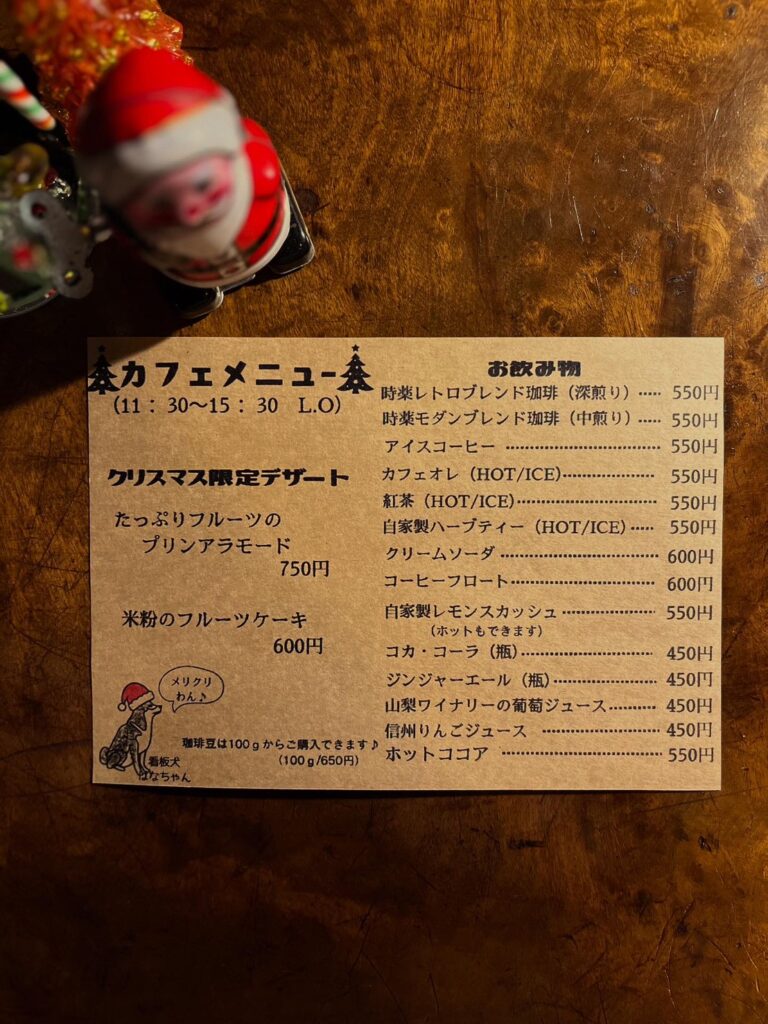 カフェメニュー
（11：30～15：30　L.O）
クリスマス限定デザート
たっぷりフルーツの
プリンアラモード
750円
米粉のフルーツケーキ
600円
メリクリ
わん♪
看板犬
はなちゃん
珈琲豆は100ｇからご購入できます♪
（100ｇ/650円）
お飲み物
時薬レトロブレンド珈琲（深煎り）‥‥‥ 550円
時薬モダンブレンド珈琲（中煎り）‥‥‥ 550円
アイスコーヒー ‥‥‥‥‥‥‥‥‥‥ 550円
カフェオレ（HOT/ICE）‥‥‥‥‥‥‥ 550円
紅茶（HOT/ICE）‥‥‥‥‥‥‥‥‥ 550円
自家製ハーブティー（HOT/ICE）‥‥ 550円
クリームソーダ ‥‥‥‥‥‥‥‥‥‥ 600円
コーヒーフロート‥‥‥‥‥‥‥‥‥ 600円
自家製レモンスカッシュ ‥‥‥‥‥‥ 550円
（ホットもできます）
コカ・コーラ（瓶）‥‥‥‥‥‥‥‥‥ 450円
ジンジャーエール（瓶）‥‥‥‥‥‥‥ 450円
山梨ワイナリーの葡萄ジュース‥‥‥ 450円
信州りんごジュース ‥‥‥‥‥‥‥‥ 450円
ホットココア ‥‥‥‥‥‥‥‥‥‥‥ 550円